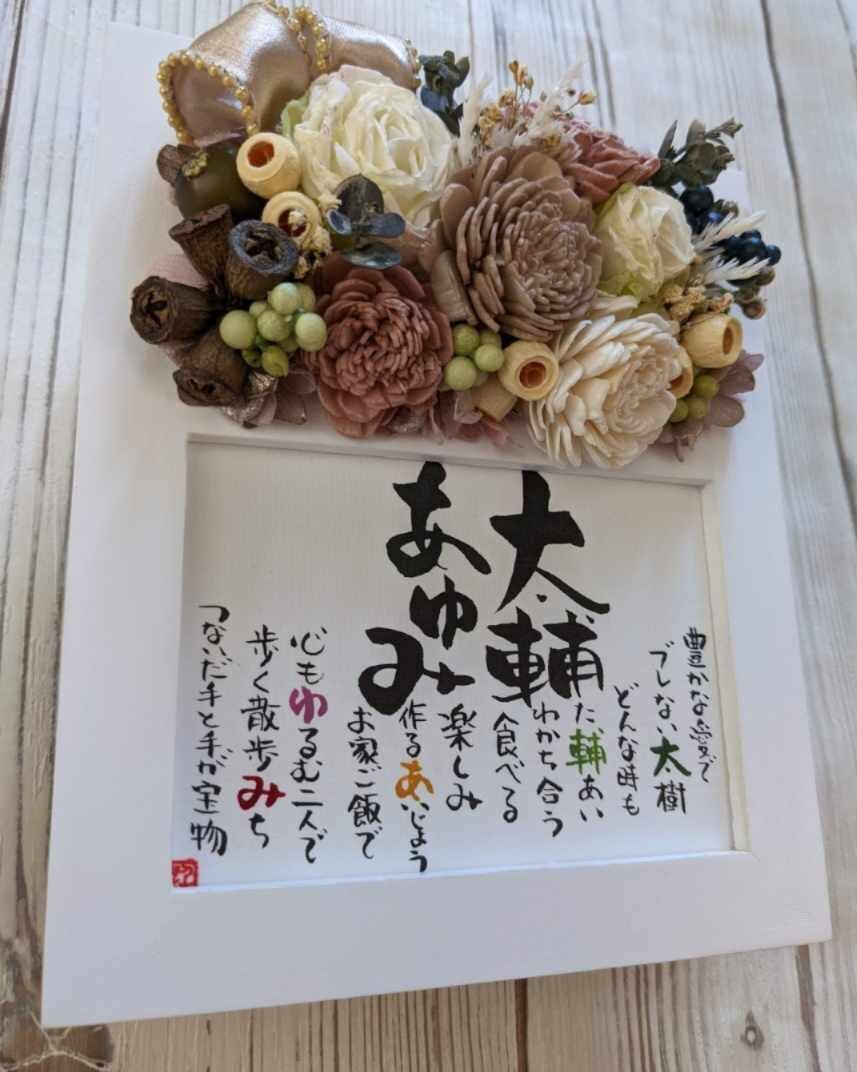 太輔
あゆみ
豊かな愛で
ブレない太樹
どんな時も
た輔あい
わかち合う
食べる
楽しみ
作るあいじょう
お家ご飯で
心もゆるむ二人で
歩く散歩みち
つないだ手と手が宝物